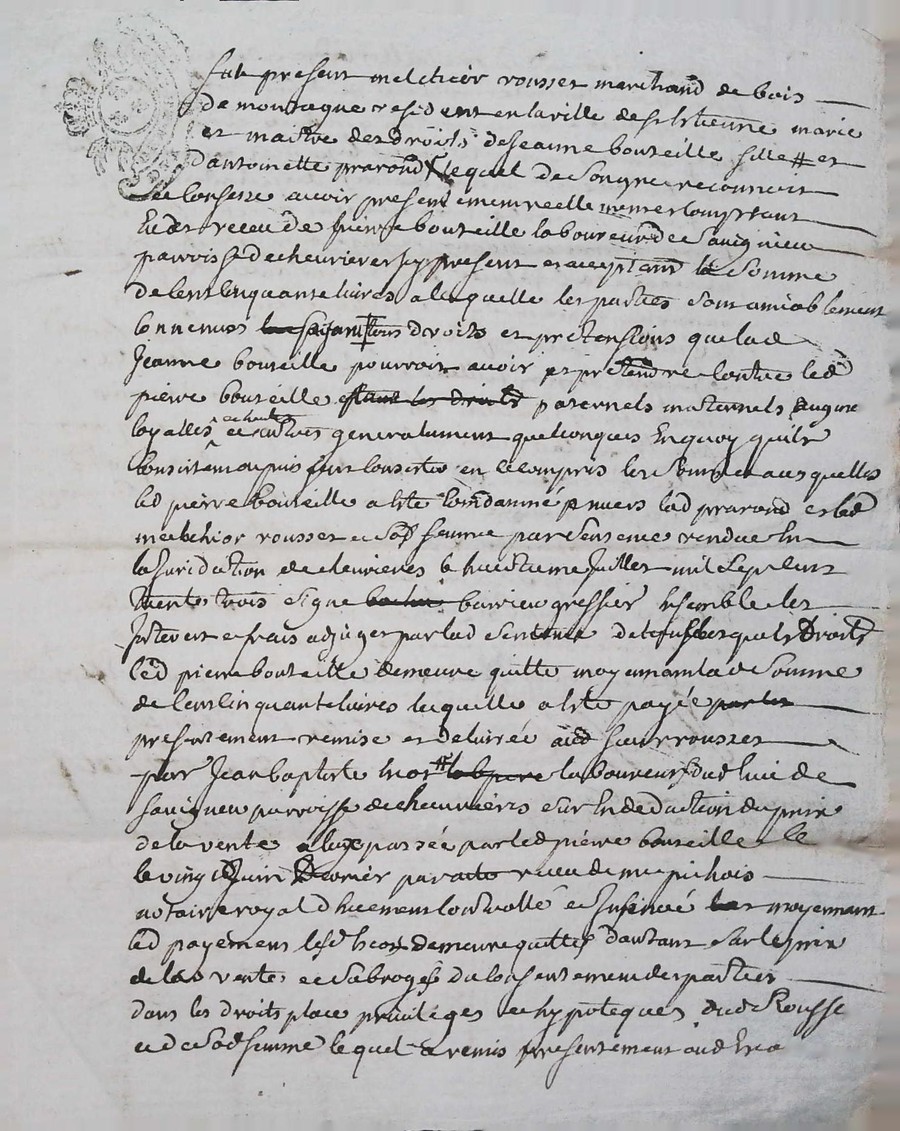 fut present melchior rousset marchand de bois
de montagne resident en la ville de st Etienne marie
et maitre des droits de jeanne bouteille fille # et
d'antoinette prarond lequel de son gre reconnoit
et confesse avoir presentement reellement et comptant
Eu et receu de pierre bouteille laboureur de Savignieu
parroisse de chevrieres icy present et acceptant la Somme
de Cent Cinquante livres a laquelle les parties Sont amiablement
Convenues tous droits et pretensions que lad
Jeanne bouteille pourroit avoir et pretendre Contre led
pierre bouteille paternels maternels augment
loyalles echeutes et autres generalement quelconques En quoy quils
Consistent et puissent Consister en ce compris les Sommes auxquelles
led pierre bouteille a été Condamné envers lad prarond et led
melchior rousset et Sad femme par Sentence rendue En
la juridiction de chevrieres le huitieme Juillet mil Sept cent
trente trois Signe barrieu greffier Ensemble les
Interest et frais adjuges par lad Sentence de tous lesquels Droits
led pierre bouteille demeure quitte moyennant lad Somme
de Cent Cinquante livres laquelle a été payée par les
presentement remise et delivrée aud Sieur rousset
par Jean baptiste # laboureur dud lieu de
Savigneu parroisse de chevrieres Sur En deduction du prix
de la vente a luy passée par led pierre bouteille le
le vingt Juin Dernier par acte receu de me pichois
notaire royal duement Controllé et Insinué moyennant
led payement led demeure quitte d'autant Sur le prix
de lad vente et Subrogé du Consentement des parties
dans les droits place privileges et hypoteques dud Rousset
et de Sad femme lequel a remis presentement aud